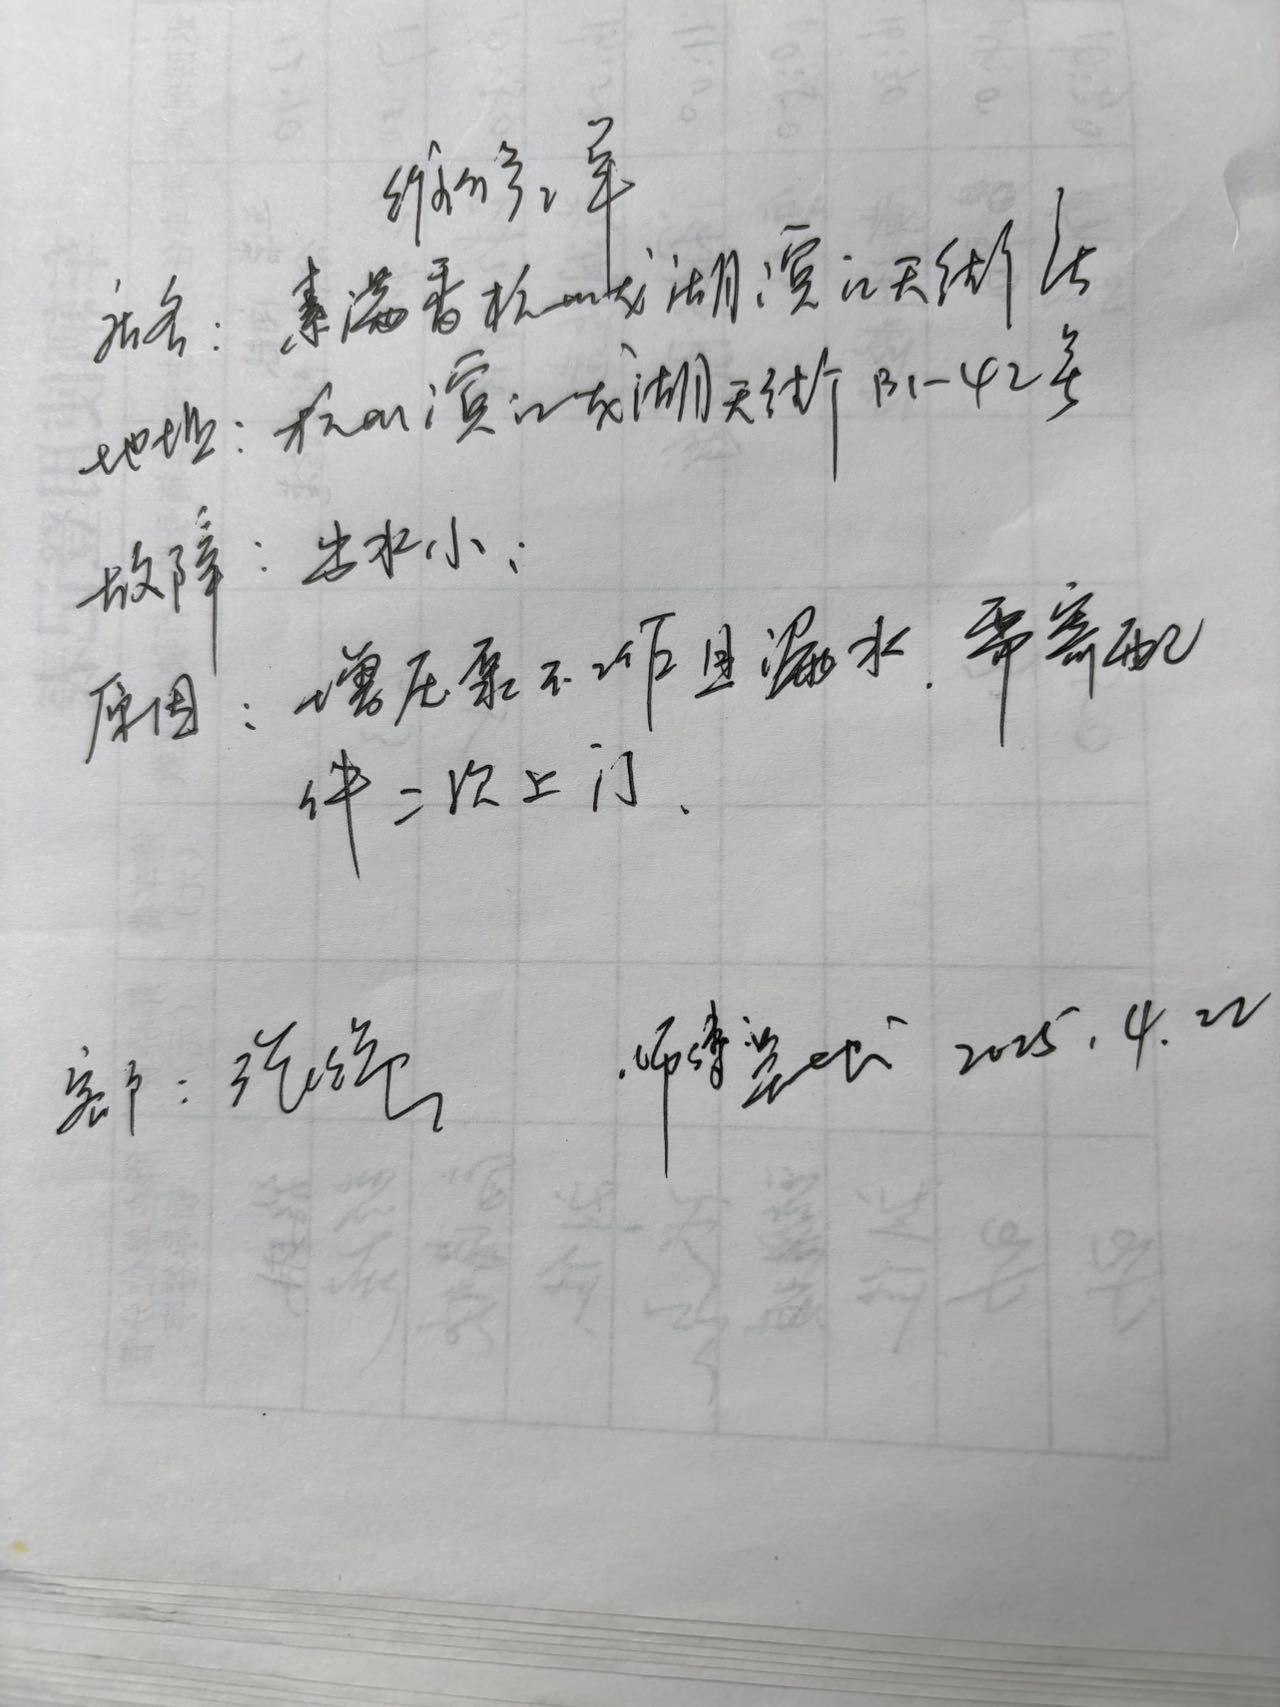 维修单
店名：素满香杭州龙湖滨江天街店
地址：杭州滨江龙湖天街B1-42号
故障：出水小；
原因：增压泵不工作且漏水．需寄配
件二次上门．
客户：张
师傅 2025.4.22